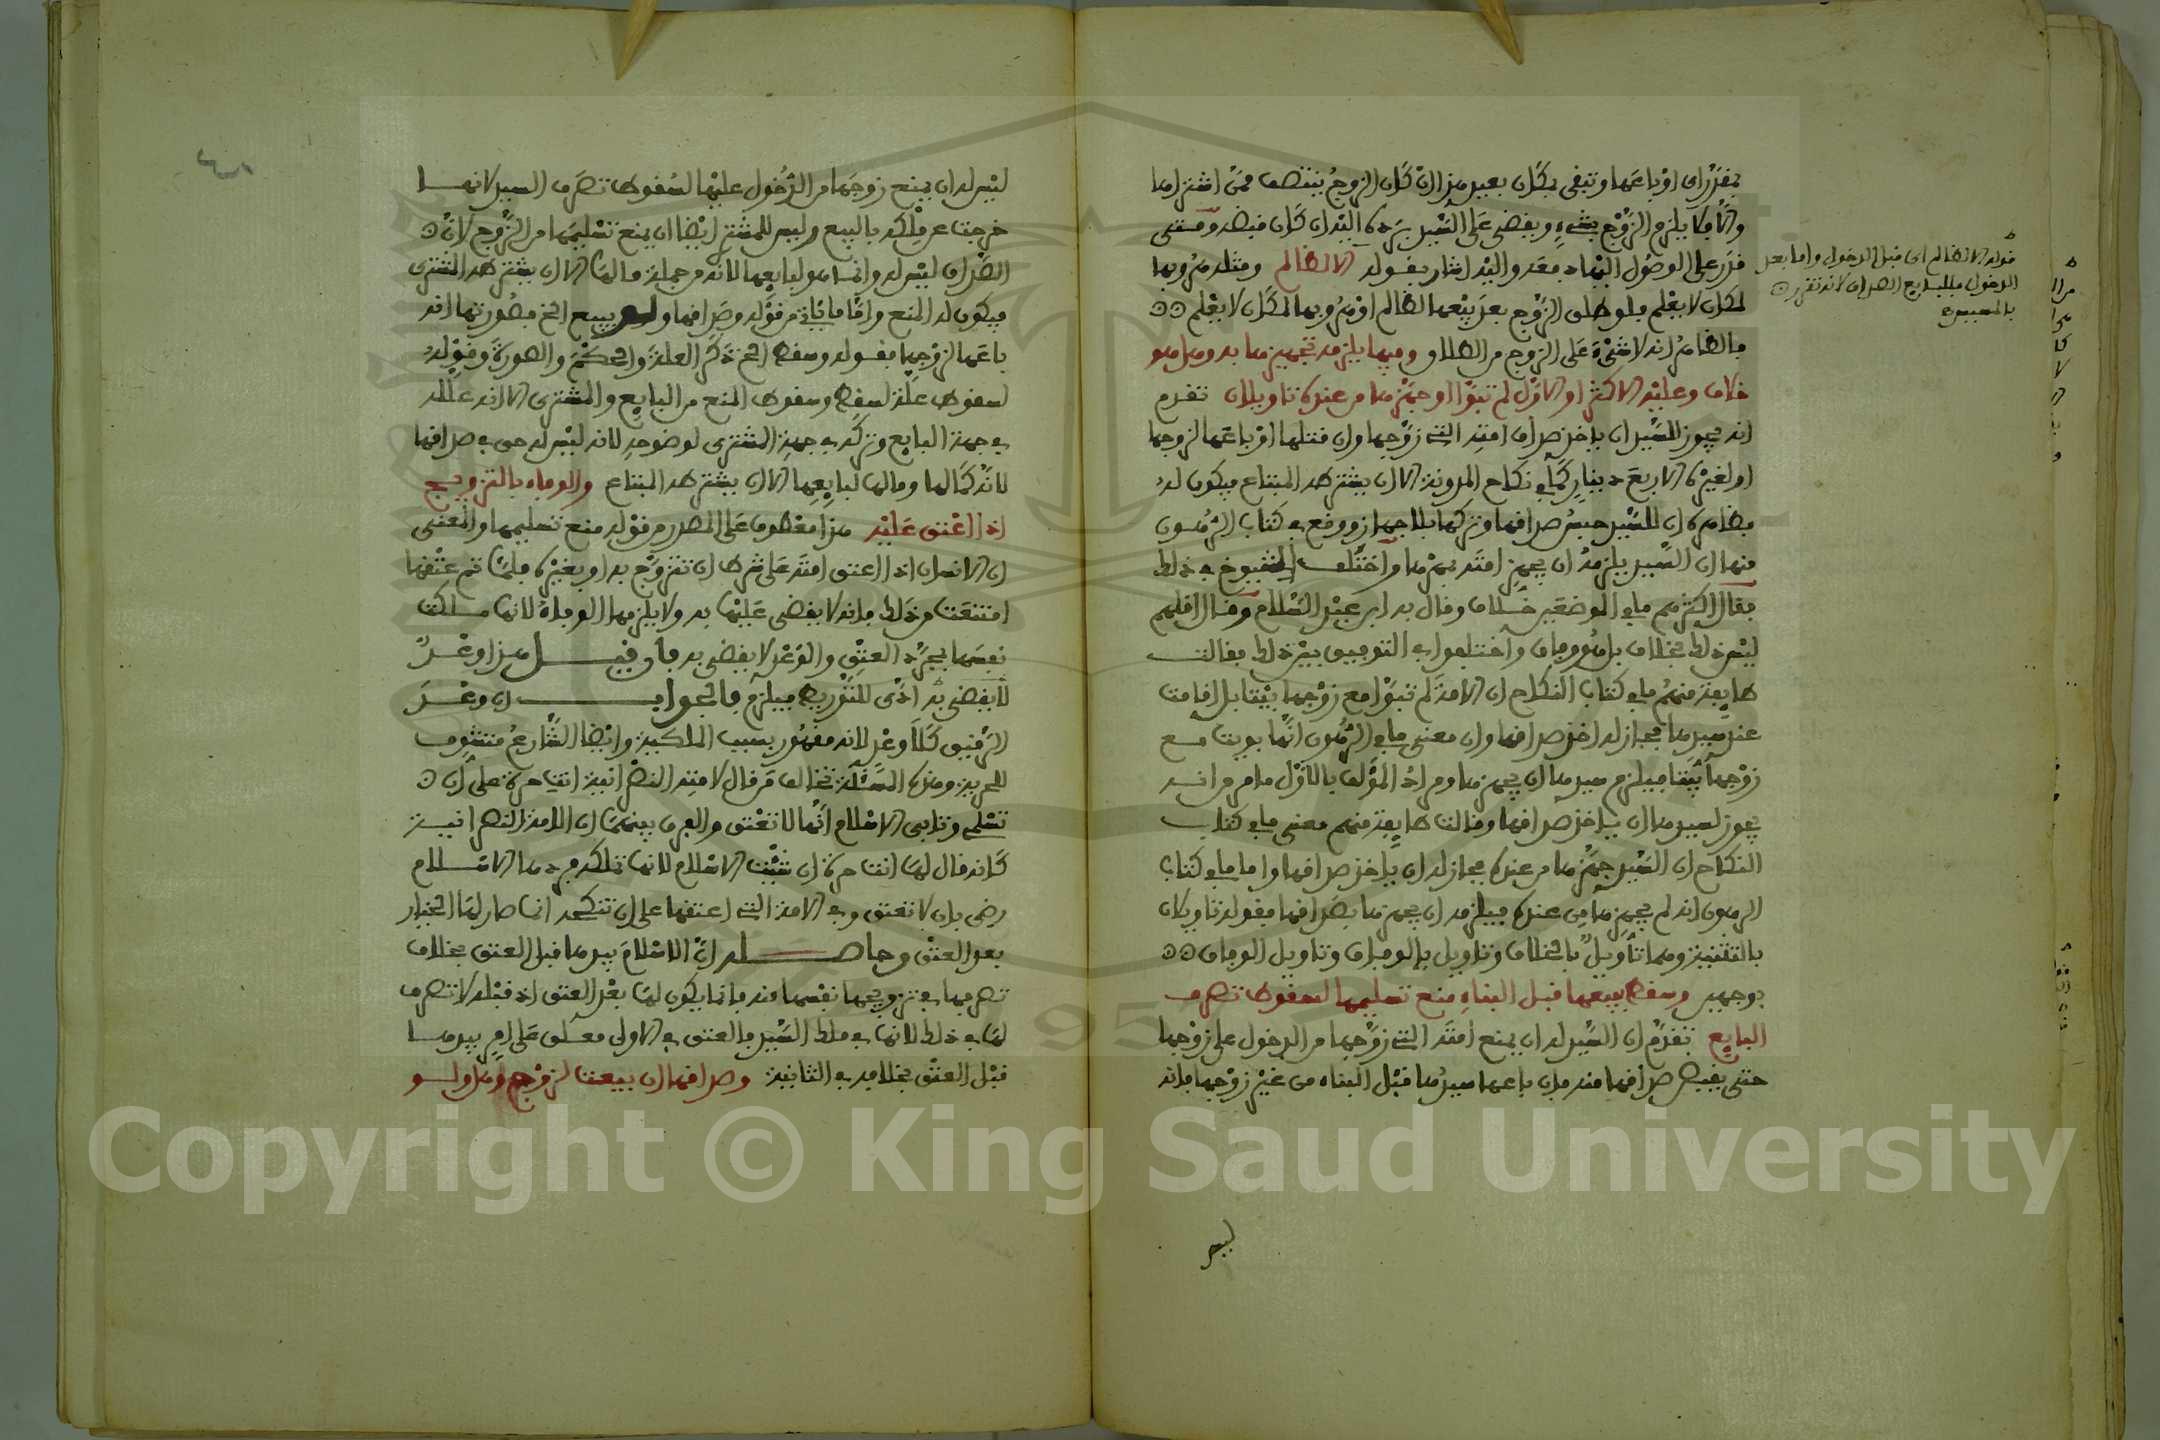 بمقدر اي او باعها وتبقى بمكان بعيد هذا ان كان الزوج ينتصف ممن اشتراها
والا فلا يلزم الزوج شيء ويقضى على السيد برده اليه ان كان قبضه ومتى
قدر على الوصول اليها دفعه واليه اشار بقوله الا لظالم ومثله هروبها
لمكان لا يعلم فلو طلق الزوج بعد بيعها لظالم او هروبها لمكان لا يعلم
فالظاهر انه لا شيء على الزوج من الطلاق وفيها يلزمه تجهيزها به وهل هو
خلاف وعليه الاكثر او الاول لم تبوا او جهزها من عنده تاويلان تقدم
انه يجوز للسيد ان ياخذ صداق امته التي زوجها وان قتلها او باعها لزوجها
او لغيره الا ربع دينار كما في نكاح المدونة الا ان يشترطه المبتاع فيكون له
فظاهره ان للسيد حبس صداقها وتركها بلا جهاز ووقع في كتاب الرهون
منها ان السيد يلزمه ان يجهز امته بمهرها واختلف الشيوخ في ذلك
فقال اكثرهم ما في الموضعين خلاف وقال به ابن عبد السلام وقال اقلهم
ليس ذلك بخلاف بل هو وفاق واختلفوا في التوفيق بين ذلك فقالت
طايفة منهم ما في كتاب النكاح ان الامة لم تبوا مع زوجها بيتا بل اقامت
عند سيدها فجاز له اخذ صداقها وان معنى ما في الرهون انها بوئت مع
زوجها بيتا فيلزم سيدها ان يجهزها ومراد المؤلف بالاول ما مر من انه
يجوز لسيدها ان ياخذ صداقها وقالت طايفة منهم معنى ما في كتاب
النكاح ان السيد جهزها من عنده فجاز له ان ياخذ صداقها واما ما في كتاب
الرهون انه لم يجهزها من عنده فيلزمه ان يجهزها بصداقها فقوله تاويلان
بالتثنية وهما تاويل بالخلاف وتاويل بالوفاق وتاويل الوفاق
بوجهين وسقط ببيعها قبل البناء منع تسليمها لسقوط تصرف
البايع تقدم ان السيد له ان يمنع امته التي زوجها من الدخول على زوجها
حتى يقبض صداقها منه فان باعها سيدها قبل البناء من غير زوجها فانه
ليس
قوله الا لظالم اي قبل الدخول واما بعد
الدخول فللبايع الصداق لانه تقرر
بالمسيس
ليس له ان يمنع زوجها من الدخول عليها لسقوط تصرف السيد لانها
خرجت عن ملكه بالبيع وليس للمشتري ايضا ان يمنع تسليمها من الزوج لان
الصداق ليس له وانما هو لبايعها لانه من جملة مالها الا ان يشترطه المشتري
فيكون له المنع واما ما ياتي من قوله وصداقها ولو ببيع الخ فصورتها انه
باعها لزوجها فقوله وسقط الخ ذكر العلة والحكم والصورة وقوله
لسقوط علة لسقط وسقوط المنع من البايع والمشتري الا انه علله
في جهة البايع وتركه في جهة المشتري لوضوحه لانه ليس له حق في صداقها
لانه كمالها ومالها لبايعها الا ان يشترطه المبتاع والوفاء بالتزويج
اذا اعتق عليه هذا معطوف على المصدر من قوله منع تسليمها والمعنى
ان الانسان اذا اعتق امته على شرط ان تتزوج به او بغيره فلما تم عتقها
امتنعت من ذلك فانه لا يقضى عليها به ولا يلزمها الوفاء لانها ملكت
نفسها بمجرد العتق والوعد لا يقضى به فان قيل هذا وعد
لا يقضى به ادى للتوريط فيلزم فالجواب ان وعد
الرقيق كلا وعد لانه مقهور بسبب الملكية وايضا الشارع متشوف
للحرية وهذه المسالة تخالف من قال لامته النصرانية انت حرة على ان
تسلمي وتابى الاسلام انها لا تعتق والفرق بينهما ان الامة النصرانية
كانه قال لها انت حرة ان شئت الاسلام لانها تملكه فردها الاسلام
رضى بان لا تعتق وفي الامة التي اعتقها على ان تنكحه انما صار لها الخيار
بعد العتق وحاصله ان الاسلام بيدها قبل العتق بخلاف
تصرفها في تزويجها نفسها منه فانما يكون لها بعد العتق اذ قبله لا تصرف
لها في ذلك لانها في ملك السيد فالعتق في الاولى معلق على امر بيدها
قبل العتق بخلافه في الثانية وصداقها ان بيعت لزوج وهل ولو
Copyright © King Saud University